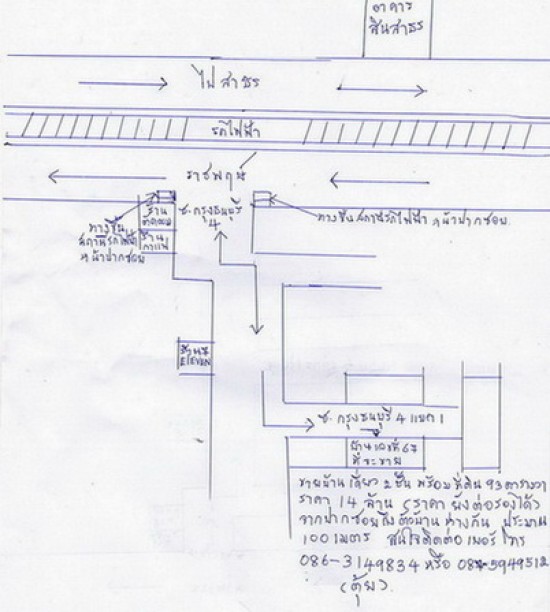 อาคาร
สินสาธร
ไปสาธร
รถไฟฟ้า
ราชพฤกษ์
ซ. กรุงธนบุรี
4
ร้าน
ตัดผม
ร้าน
กาแฟ
ทางขึ้น
สถานีรถไฟฟ้า
หน้าปากซอย
ทางขึ้นสถานีรถไฟฟ้า หน้าปากซอย
ร้าน 7
ELEVEN
ซ. กรุงธนบุรี 4 แยก 1
บ้านเลขที่ 67
ที่จะขาย
ขายบ้านเดี่ยว 2 ชั้น พร้อมที่ดิน 93 ตารางวา
ราคา 14 ล้าน (ราคายังต่อรองได้)
จากปากซอยถึงตัวบ้าน ห่างกัน ประมาณ
100 เมตร สนใจติดต่อ เบอร์ โทร
086-3149834 หรือ
(ตุ้ม)